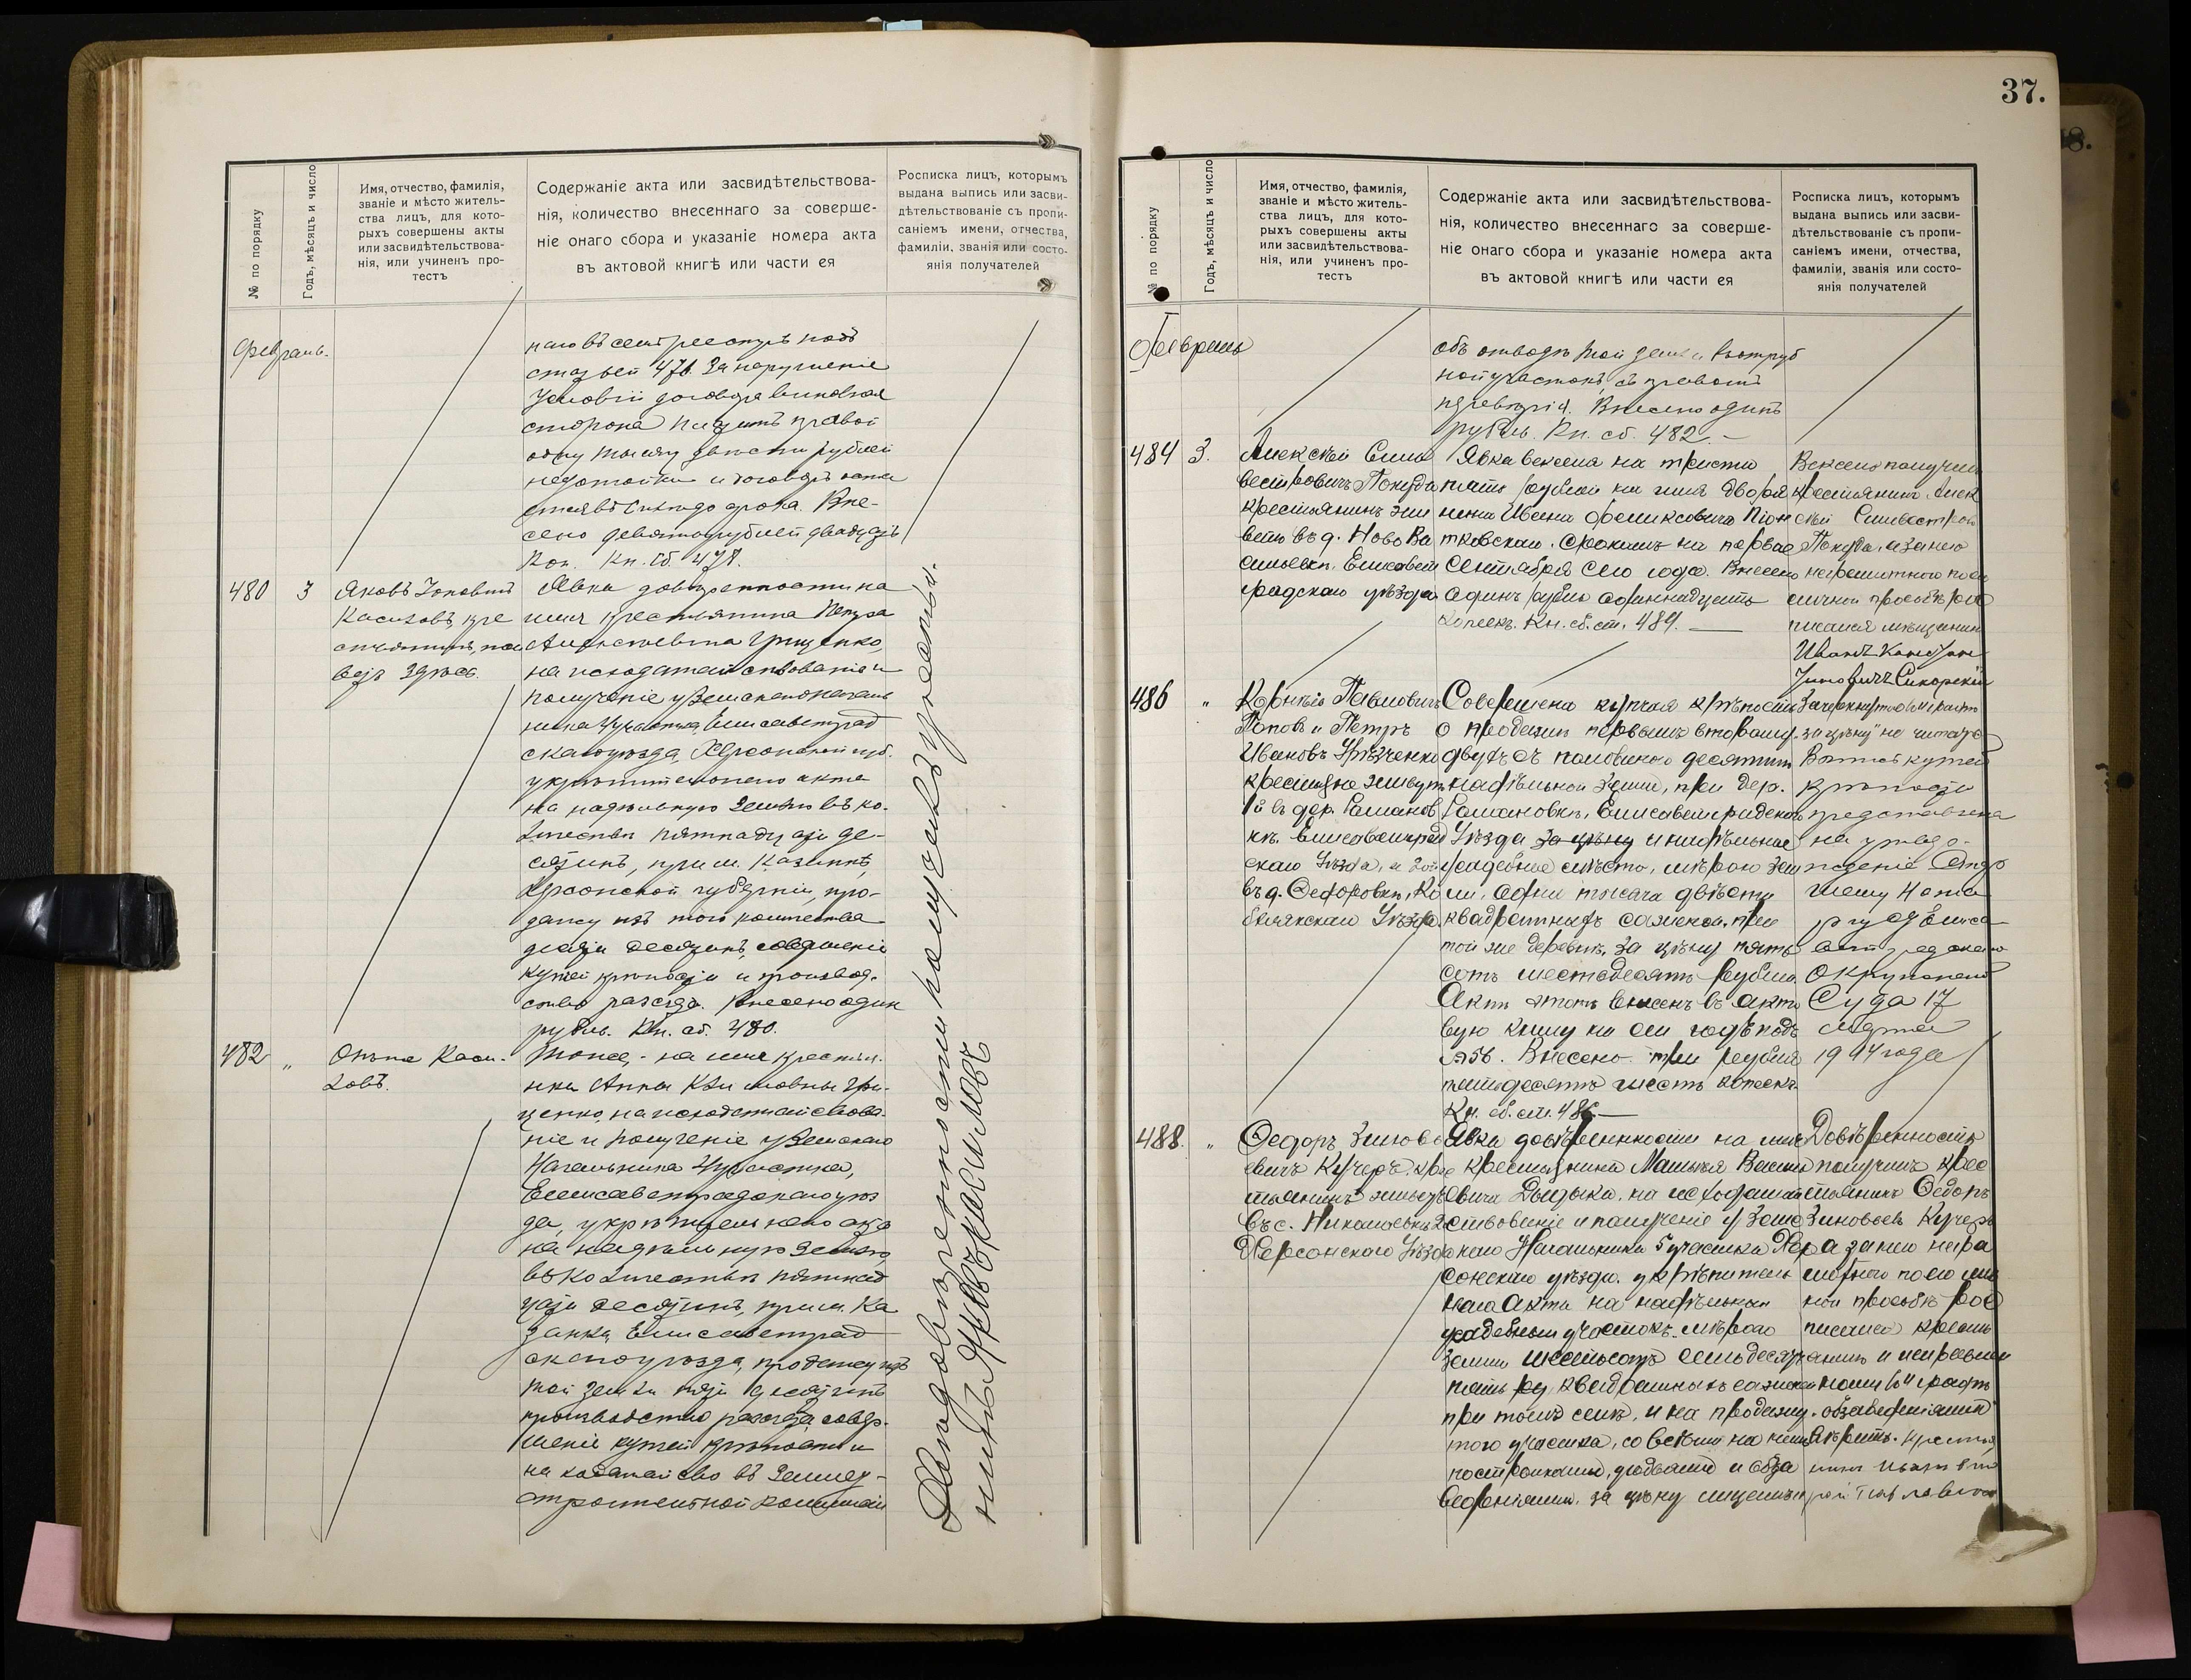 37.
№ по порядку
Годъ, мѣсяцъ и число
Имя, отчество, фамилія,
званіе и мѣсто житель-
ства лицъ, для кото-
рыхъ совершены акты
или засвидѣтельствова-
нія, или учиненъ про-
тестъ
Содержаніе акта или засвидѣтельствова-
нія, количество внесеннаго за соверше-
ніе онаго сбора и указаніе номера акта
въ актовой книгѣ или части ея
Росписка лицъ, которымъ
выдана выпись или засви-
дѣтельствованіе съ пропи-
саніемъ имени, отчества,
фамиліи, званія или состо-
янія получателей
Февраль.
наго въ семъ реестрѣ подъ
статьей 476. За нарушеніе
условій договора виновная
сторона платитъ правой
одну тысячу двѣсти рублей
неустойки и договоръ оста
ется въ силѣ до срока. Вне-
сено девять рублей двадцать
коп. Кн. сб. 478.
480
3
Яковъ
Касиловъ, кре
стьянинъ,
здѣсь.
Явка довѣренности на
имя крестьянина Петра
Грищенко,
на исходатайствованіе и
полученіе у Земскаго началь
ника участка, Елисаветград
скаго уѣзда, Херсонской губ.
укрѣпительнаго акта
на надѣльную землю въ ко-
личествѣ пятнадцати де-
сятинъ, при м. Казанкѣ,
Херсонской губерніи, про-
дажу изъ того количества
десяти десятинъ, совершеніе
купчей крѣпости и производ-
ство разсчета. Внесено одинъ
рубль. Кн. сб. 480.
482
"
Онъ же Каси-
ловъ.
Тоже, - на имя крестьян.
нки Анны Гри-
ценко, на исходатайствова-
ніе и полученіе у Земскаго
Начальника участка,
Елисаветградскаго уѣз
да, укрѣпительнаго акта
на надѣльную землю,
въ количествѣ пятнад
цати десятинъ, при м. Ка
занкѣ, Елисаветград
скаго уѣзда, продажу изъ
той земли пяти десятинъ
производство разсчета, совер-
шеніе купчей крѣпости и
на ходатайство въ Землеу-
строительной Коммиссіи
Двѣ довѣренности получилъ крестья
нинъ Яковъ Касиловъ
№ по порядку
Годъ, мѣсяцъ и число
Имя, отчество, фамилія,
званіе и мѣсто житель-
ства лицъ, для кото-
рыхъ совершены акты
или засвидѣтельствова-
нія, или учиненъ про-
тестъ
Содержаніе акта или засвидѣтельствова-
нія, количество внесеннаго за соверше-
ніе онаго сбора и указаніе номера акта
въ актовой книгѣ или части ея
Росписка лицъ, которымъ
выдана выпись или засви-
дѣтельствованіе съ пропи-
саніемъ имени, отчества,
фамиліи, званія или состо-
янія получателей
Февраль
объ отводѣ той земли въ отруб
ной участокъ, съ правомъ
передовѣрія. Внесено одинъ
рубль. Кн. сб. 482. —
484
3.
Алексѣй Силь
вестровичъ Покуда
крестьянинъ жи
ветъ въ д. Ново Ва
сильевкѣ, Елисавет
градскаго уѣзда
Явка векселя на триста
пять рублей на имя Дворя
нина Ивана Феликсовича Піон
тковскаго. Срокомъ на первое
Сентября сего года. Внесено
одинъ рубль одиннадцать
копеекъ. Кн. сб. ст. 484. —
Вексель получилъ
крестьянинъ Алек
сѣй Сильвестров
Покуда, а за него
неграмотнаго по его
личной просьбѣ рос
писался мѣщанинъ
Иванъ
Сикорскій
486
"
Корнилій Павловичъ
Поповъ и Петръ
Ивановъ
крестьяне живутъ
1й въ дер. Рошанов
кѣ, Елисаветград
скаго Уѣзда, а 2ой
въ д. Федоровкѣ, Ко
белякскаго Уѣзда.
Совершена купчая крѣпость
о продажѣ первымъ второму
двухъ съ половиною десятинъ
надѣльной земли, при дер.
Рошановкѣ, Елисаветградскаго
Уѣзда за цѣну и надѣльное
усадебное мѣсто, мѣрою зем
ли, одна тысяча двѣсти
квадратныхъ саженей, при
той же деревнѣ, за цѣну пять
сотъ шестьдесятъ рублей.
Актъ этотъ внесенъ въ акто
вую книгу на сей годъ подъ
№56. Внесено три рубля
пятьдесятъ шесть копеекъ.
Кн. сб. ст. 486. —
Зачеркнутое въ 4 графѣ
"за цѣну" не читать
Выпись купчей
крѣпости
представлена
на утвер-
жденіе Стар
шему Нота
ріусу Елиса
ветградскаго
Окружнаго
Суда 17
марта
1914 года
488.
"
Федоръ Зиновь
евичъ Кучеръ, кре
стьянинъ живетъ
въ с. Николаевкѣ 2
Херсонскаго Уѣзда
Явка довѣренности на имя
крестьянина Василь
евича Дындыка, на исходатай
ствованіе и полученіе у Земс
каго Начальника 5 участка Хер
сонскаго уѣзда, укрѣпитель
наго Акта на надѣльный
усадебный участокъ мѣрою
земли шестьсотъ семьдесятъ
пять кв квадратныхъ саженей
при томъ селѣ, и на продажу
того участка, со всѣми на немъ
постройками, угодьями и обза
веденіями, за цѣну
Довѣренность
получилъ крес
тьянинъ Федоръ
Зиновьевъ Кучеръ
а за него негра
мотнаго по его лич
ной просьбѣ рос
писался крестья